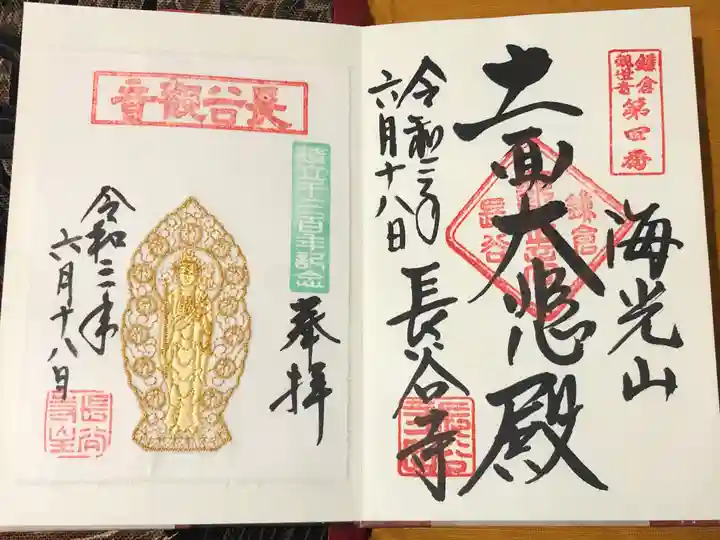 鎌倉
観世音
第四番
海光山
十一面大悲殿
鎌倉
長谷
令和三年
六月十八日
長谷寺
長谷觀音
造立千三百年記念
奉拝
令和三年
六月十八日